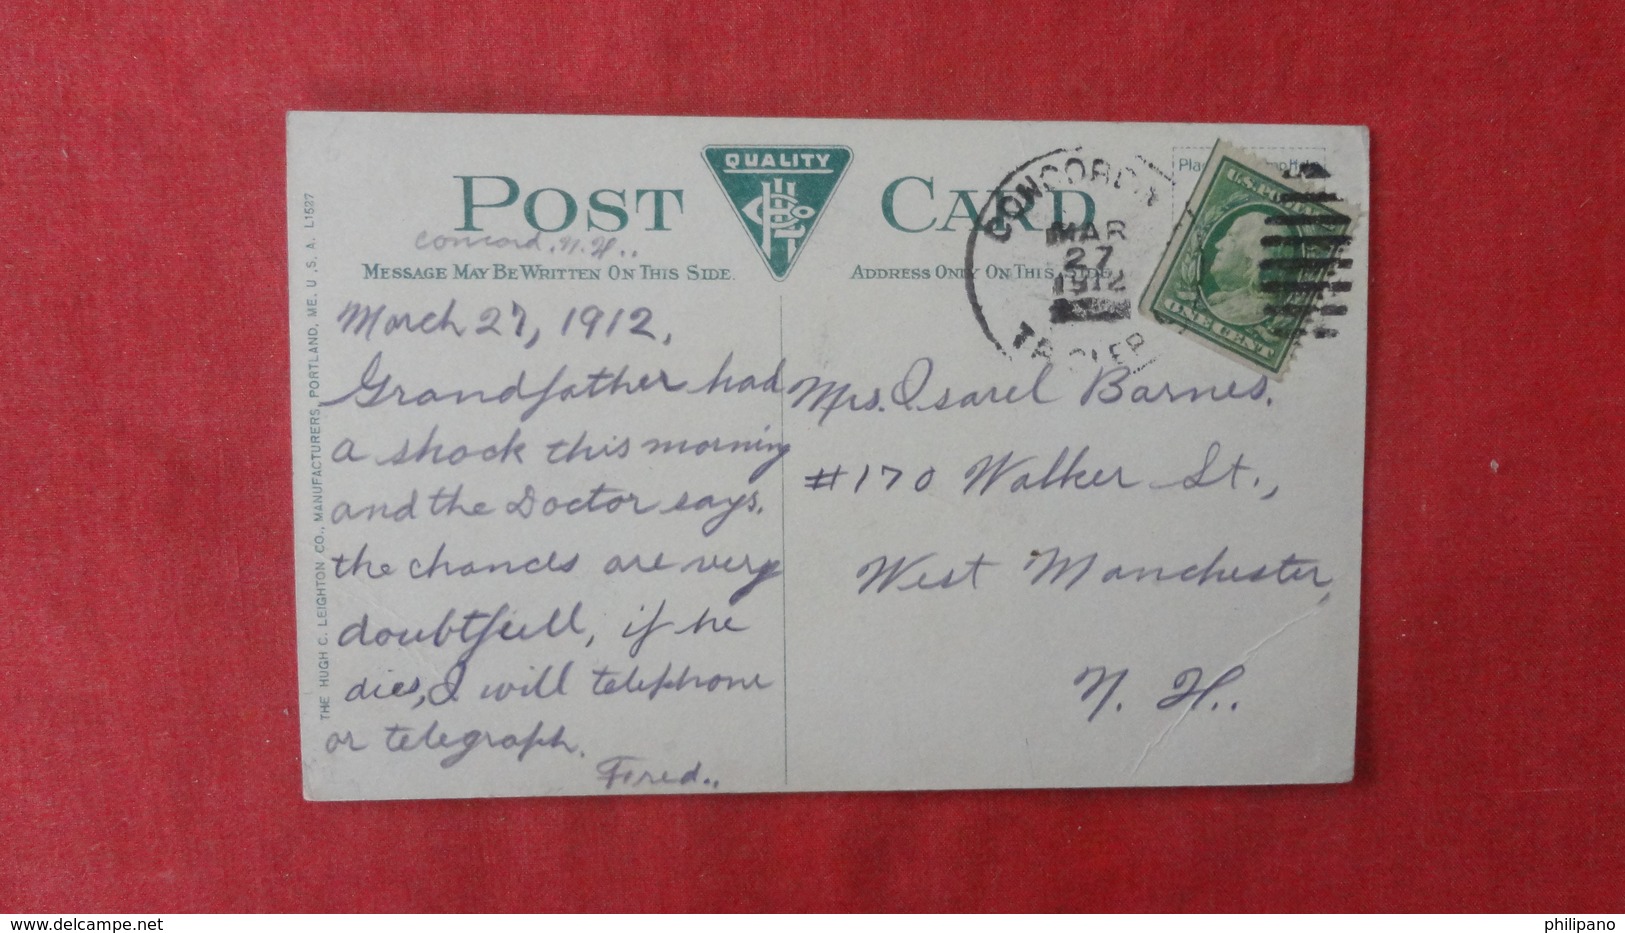 POST CARD
QUALITY
Concord. N. H..
MESSAGE MAY BE WRITTEN ON THIS SIDE.
ADDRESS ONLY ON THIS SIDE
THE HUGH C. LEIGHTON CO., MANUFACTURERS, PORTLAND, ME. U.S.A. L1527
MAR
27
1912
U.S. PO
ONE CENT
March 27, 1912,
Grandfather had
a shock this morning
and the Doctor says.
the chances are very
doubtfull, if he
dies, I will telephone
or telegraph.
Fred..
Mrs. Isarel Barnes.
#170 Walker St.,
West Manchester,
N. H..
www.delcampe.net
philipano